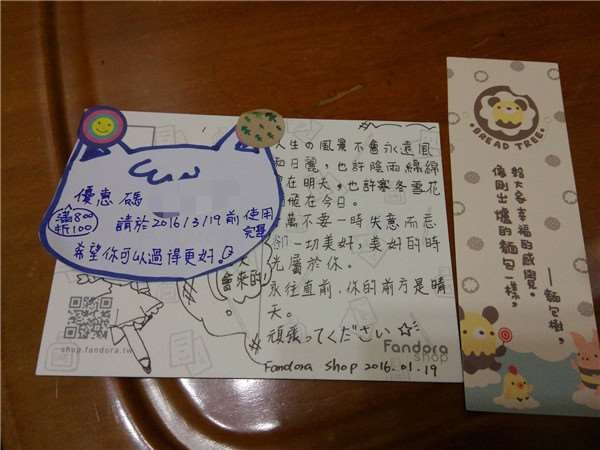 優惠碼
滿800
折100
請於2016/3/19前使用
完畢
希望你可以過得更好。
會來的
shop.fandora.tw
人生の風景不會永遠風
和日麗,也許陰雨綿綿
在明天,也許寒冬雪花
在今日。
萬不要一時失意而忘
卻一切美好,美好的時
光屬於你。
永往直前,你的前方是晴
天。
頑張ってください☆
Fandora
shop
Fandora Shop 2016.01.19
BREAD TREE
給大家幸福的感覺。
像剛出爐的麵包一樣。
——麵包樹。